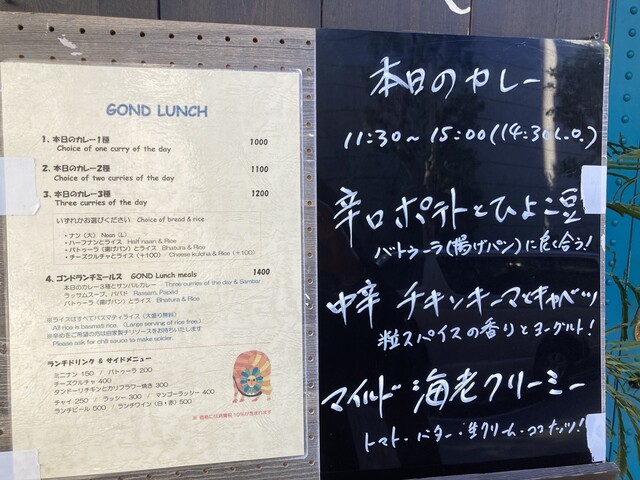 GOND LUNCH
1. 本日のカレー1種 1000
Choice of one curry of the day
2. 本日のカレー2種 1100
Choice of two curries of the day
3. 本日のカレー3種 1200
Three curries of the day
いずれかお選びください Choice of bread & rice
・ナン（大） Naan (L)
・ハーフナンとライス Half naan & Rice
・バトゥーラ（揚げパン）とライス Bhatura & Rice
・チーズクルチャとライス（＋100） Cheese kulcha & Rice（＋100）
4. ゴンドランチミールス GOND Lunch meals 1400
本日のカレー3種とサンバルカレー Three curries of the day & Sambar
ラッサムスープ、パパド Rasam, Papad
バトゥーラ（揚げパン）とライス Bhatura & Rice
※ライスはすべてバスマティライス（大盛り無料）
All rice is basmati rice. (Large serving of rice free.)
※辛めをご希望の方は自家製チリソースをお持ちいたします
Please ask for chili sauce to make spicier.
ランチドリンク & サイドメニュー
ミニナン 150 / バトゥーラ 200
チーズクルチャ 400
タンドーリチキンとカリフラワー焼き 300
チャイ 250 / ラッシー 300 / マンゴーラッシー 400
ランチビール 500 / ランチワイン（白・赤）500
※ 価格には消費税 10%が含まれます
本日のカレー
11:30～15:00(14:30L.O.)
辛口 ポテトとひよこ豆
バトゥーラ(揚げパン)に良く合う!
中辛 チキンキーマとキャベツ
粒スパイスの香りとヨーグルト!
マイルド 海老クリーミー
トマト・バター・生クリーム・ココナッツ!